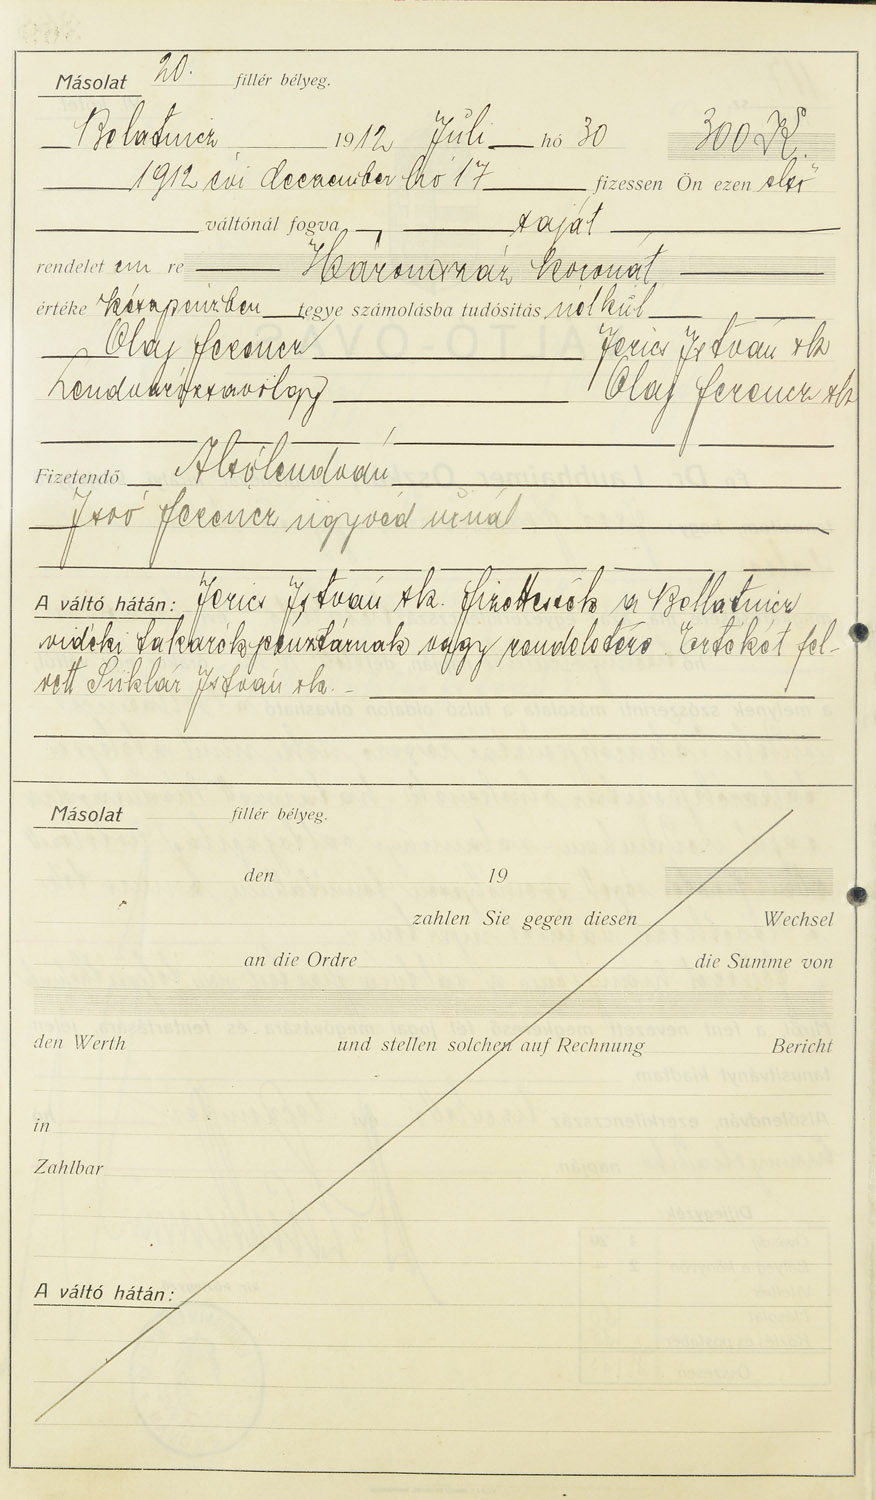 Másolat 20. fillér bélyeg.
Belatincz 1912 Juli hó 30 300 K.
1912 évi december hó 17 fizessen Ön ezen első
váltónál fogva saját
rendelet em re Háromszáz koronát
értéke készpénzben tegye számolásba tudósitás nélkül
Olaj Ferencz Jerics István sk
Lendvarózsavölgy Olaj Ferencz sk
Fizetendő Alsólendván
Isoó Ferencz ügyvéd úrnál
A váltó hátán: Jerics István sk. fizettessék a Bellatincz
vidéki takarékpénztárnak vagy rendeletére Értékét fel-
vett Siklár István sk. -
Másolat fillér bélyeg.
den 19
zahlen Sie gegen diesen Wechsel
an die Ordre die Summe von
den Werth und stellen solchen auf Rechnung Bericht
in
Zahlbar
A váltó hátán: